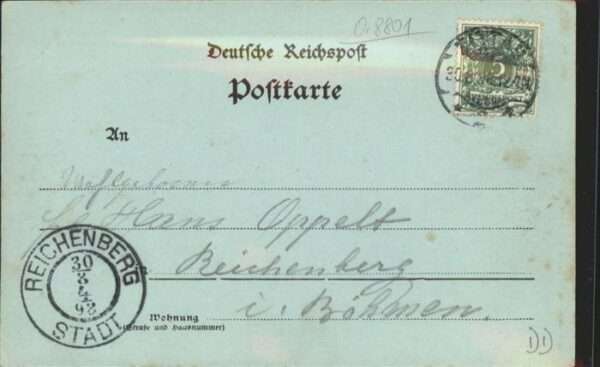 O. 8801
Deutsche Reichspost
Postkarte
5
An
Wohlgeboren
Hans Oppelt
Reichenberg
i. Böhmen.
Wohnung
(Straße und Hausnummer)
REICHENBERG
30
8
98
STADT